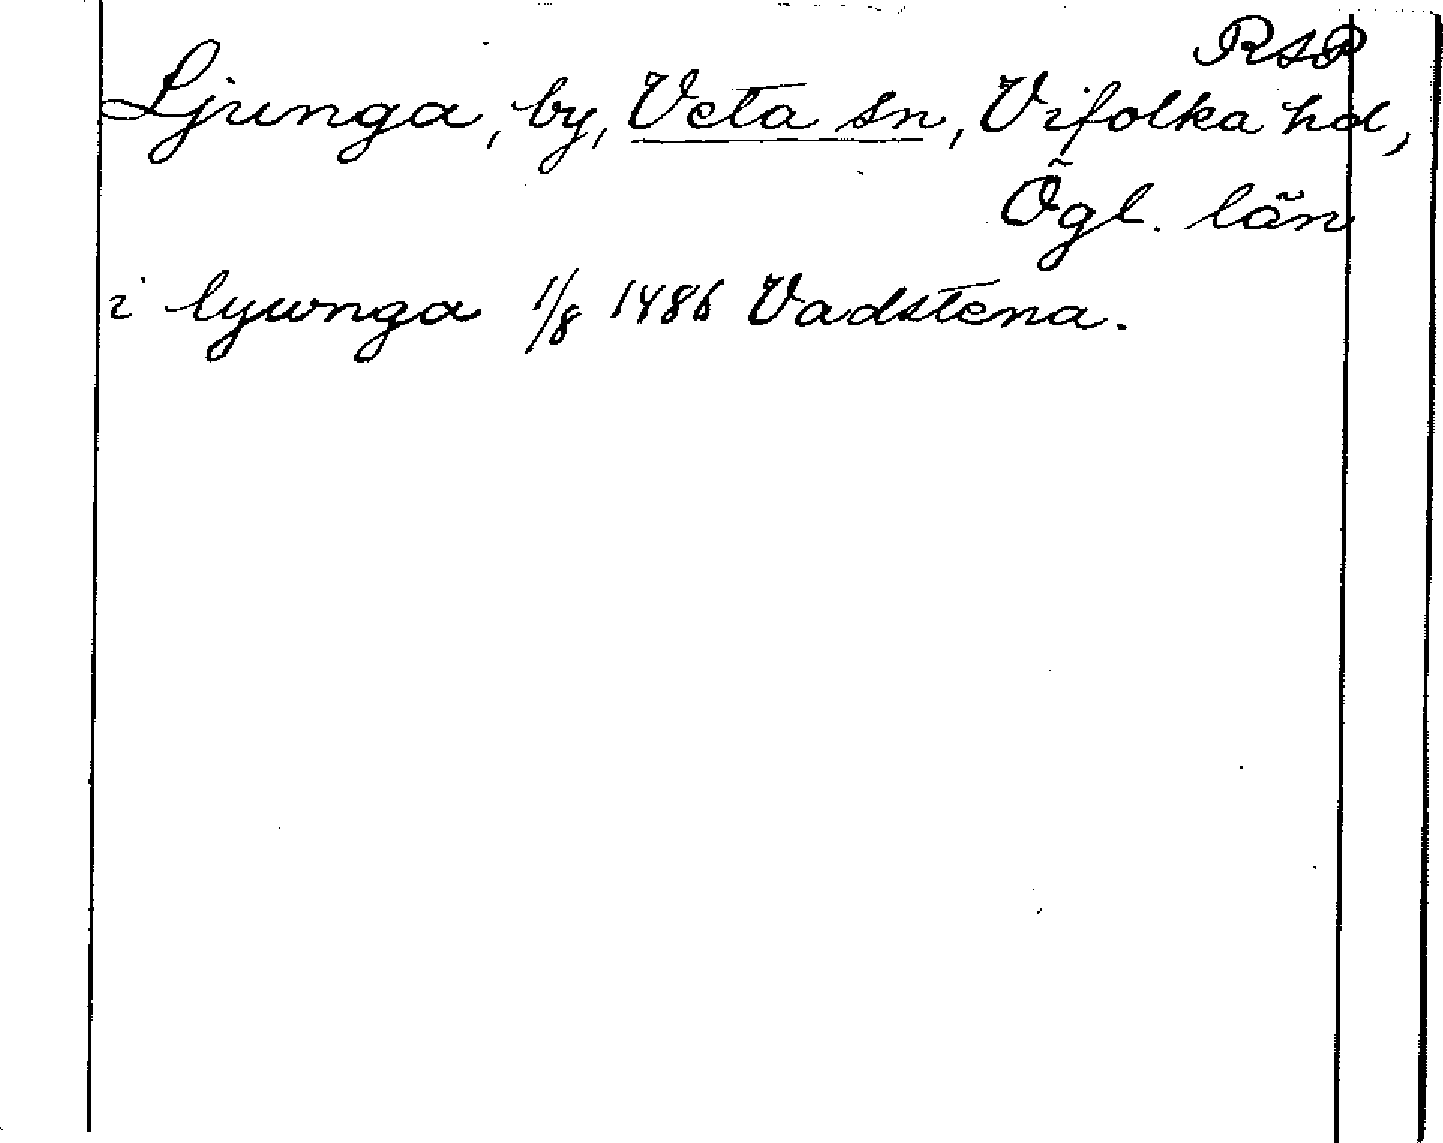 RAP
Ljunga, by, Veta sn, Vifolka hd,
Ögl. län
i lywnga 1/8 1486 Vadstena.